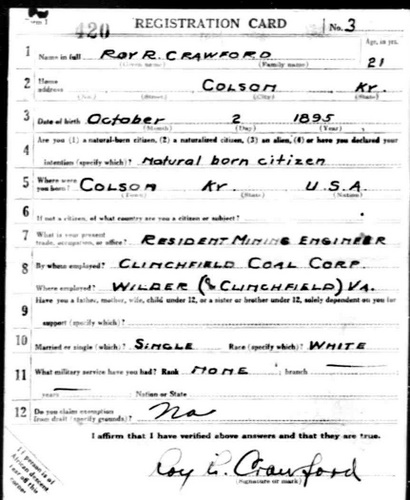 Form 1 420 REGISTRATION CARD No. 3
1 Name in full ROY R. CRAWFORD Age, in yrs. 21
(Given name) (Family name)
2 Home address COLSON KY.
(No.) (Street) (City) (State)
3 Date of birth October 2 1895
(Month) (Day) (Year)
4 Are you (1) a natural-born citizen, (2) a naturalized citizen, (3) an alien, (4) or have you declared your
intention (specify which)? Natural born citizen
5 Where were you born? COLSON KY U.S.A.
(Town) (State) (Nation)
6 If not a citizen, of what country are you a citizen or subject?
7 What is your present trade, occupation, or office? RESIDENT MINING ENGINEER
8 By whom employed? CLINCHFIELD COAL CORP.
Where employed? WILDER (CLINCHFIELD) VA.
9 Have you a father, mother, wife, child under 12, or a sister or brother under 12, solely dependent on you for
support (specify which)?
10 Married or single (which)? SINGLE Race (specify which)? WHITE
11 What military service have you had? Rank NONE ; branch
years Nation or State
12 Do you claim exemption from draft (specify grounds)? No
I affirm that I have verified above answers and that they are true.
Roy R. Crawford
(Signature or mark)
If person is of
African descent
tear off this
corner